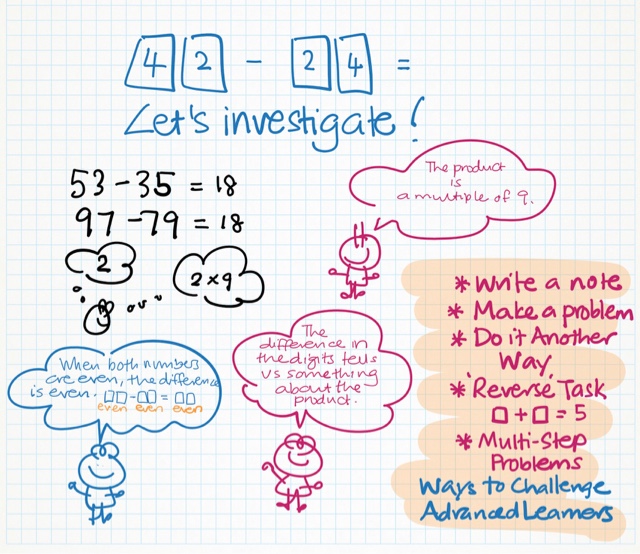 42 - 24 =
Let's investigate!
53 - 35 = 18
97 - 79 = 18
2
2×9
The product
is
a multiple of 9.
When both numbers
are even, the difference
is even. □□-□□=□□
even even even
The
difference in
the digits tells
us something
about the
product.
* Write a note
* Make a problem
* Do it Another
Way
* 'Reverse' Task
□ + □ = 5
* Multi-Step
Problems
Ways to Challenge
Advanced Learners